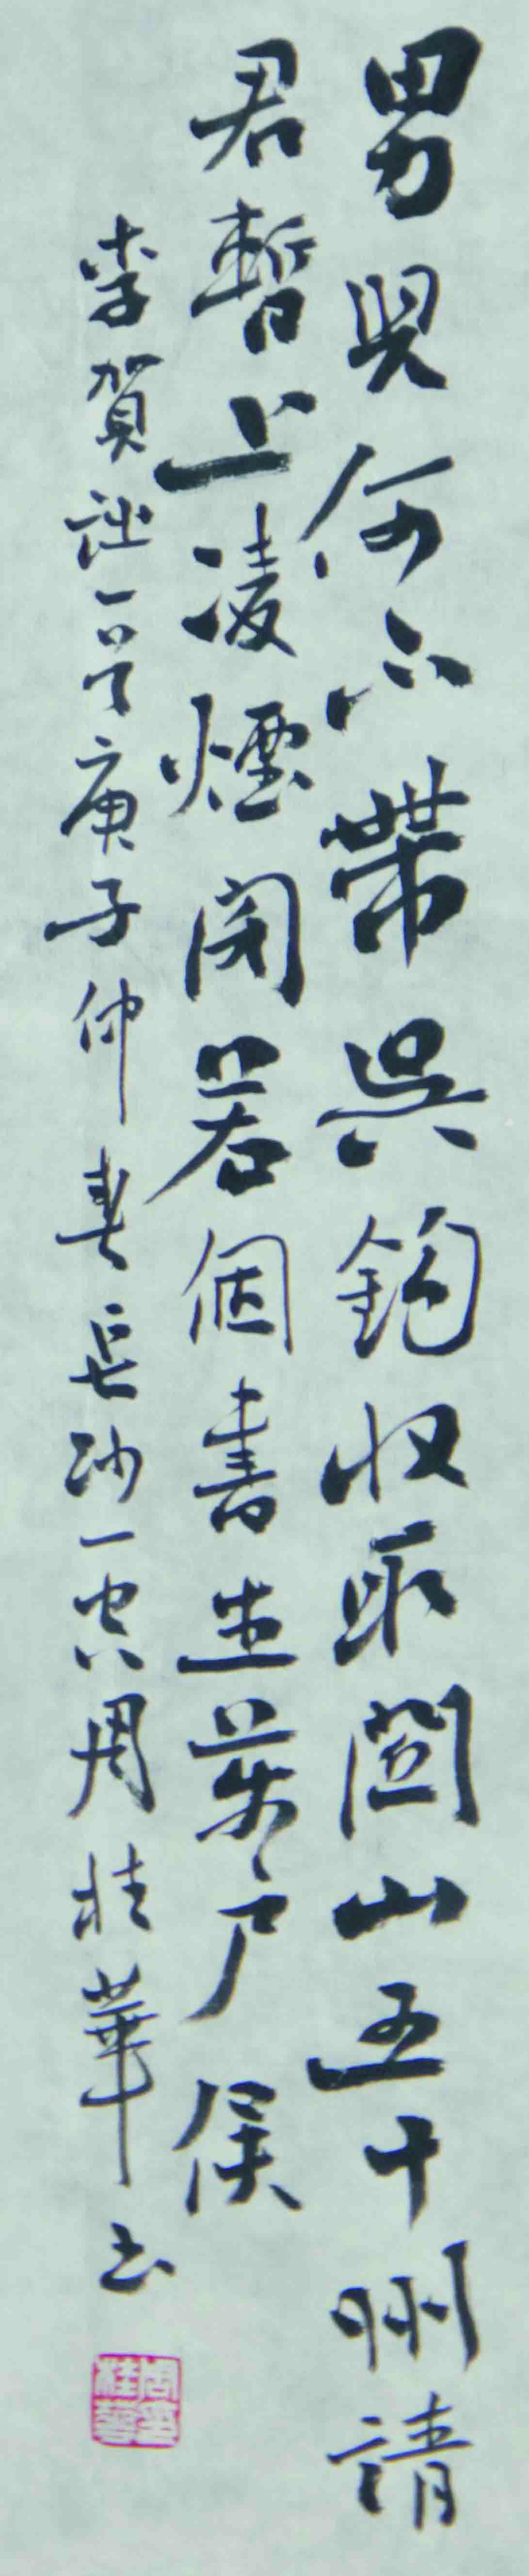 男兒何不帶吳鉤收取關山五十州請
君暫上凌煙閣若個書生萬戶侯
李賀詩一首庚子仲春長沙一宮周桂華書